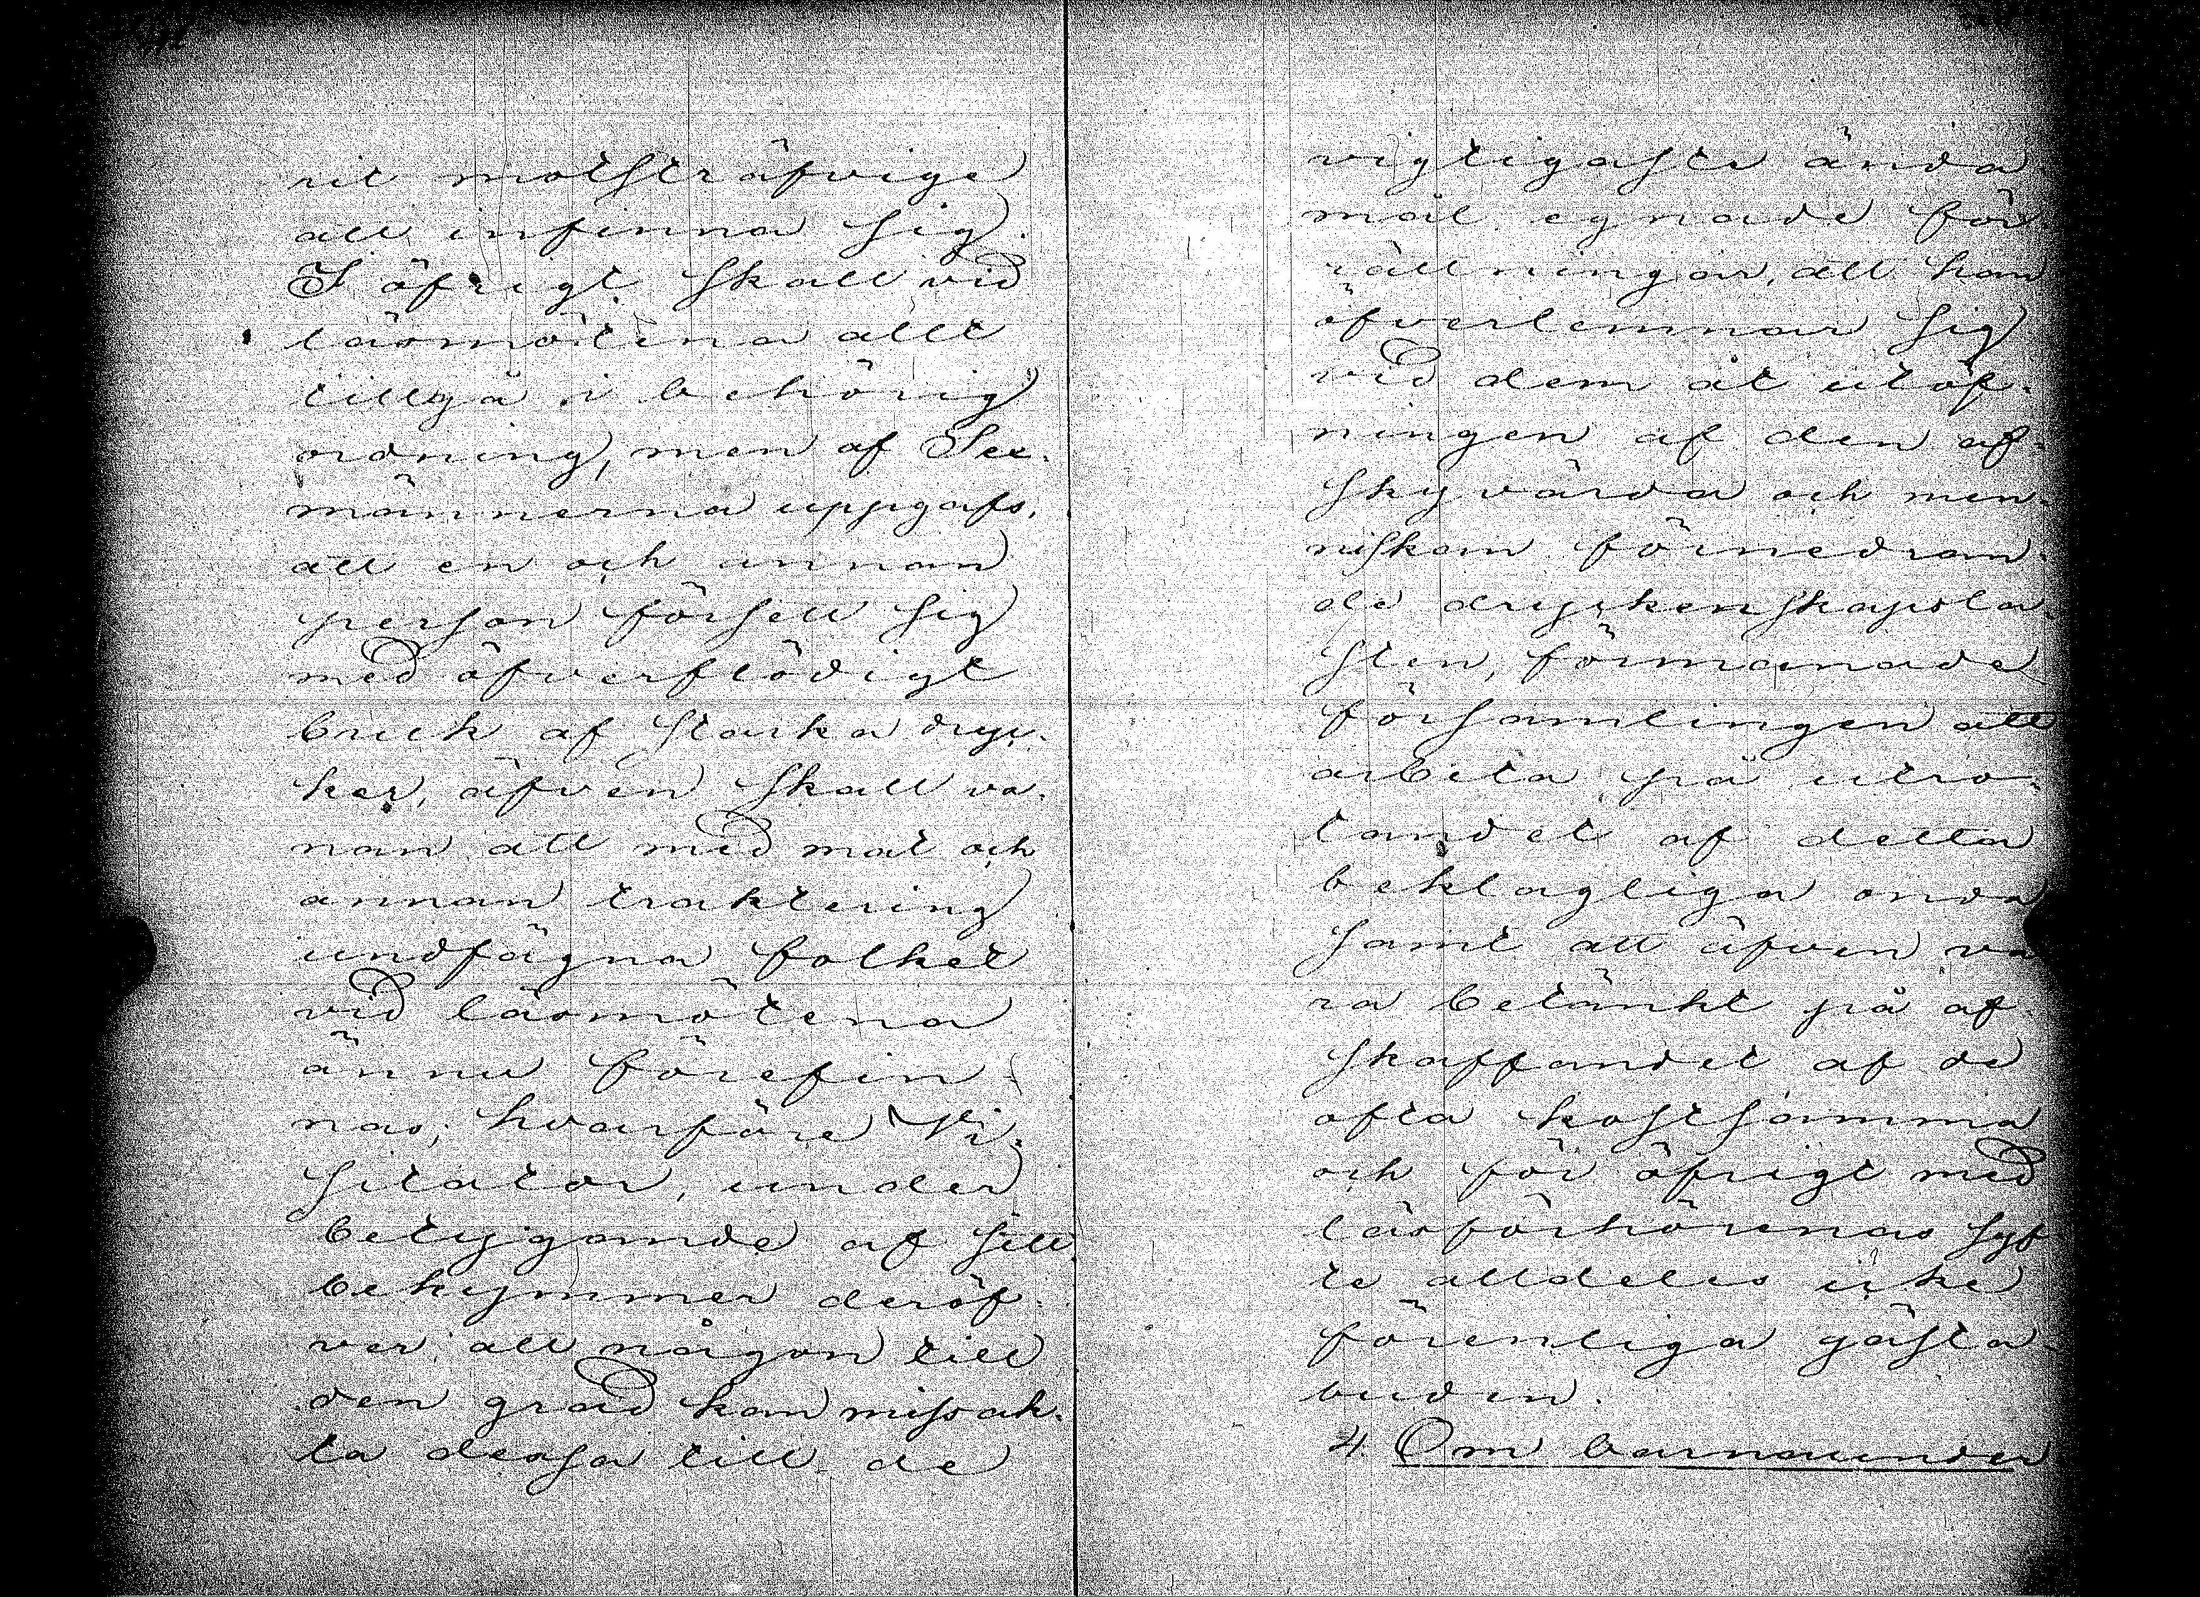 rit motsträfvige
att infinna sig.
I öfrigt skall vid
läsmötena allt
tillgå i behörig
ordning, men af Sex-
männerna uppgafs,
att en och annan
person försett sig
med öfverflödigt
bruk af starka dryc-
ker, äfven skall va-
nan att med mat och
annan traktering
undfägna folket
vid läsmötena
ännu förefin-
nas; hvarföre Vi-
sitator, under
betygande af sitt
bekymmer deröf-
ver att någon till
den grad kan missak-
ta dessa till de
vigtigaste ända-
mål egnade för-
rättningar, att han
öfverlemnar sig
vid dem åt utöf-
ningen af den af-
skyvärda och men-
niskan förnedran-
de dryckenskapsla-
sten, förmanade
församlingen att
arbeta på utro-
tandet af detta
beklagliga onda
samt att äfven va
ra betänkt på af-
skaffandet af de
ofta kostsamma
och för öfrigt med
läsförhörenas syf
te alldeles icke
förenliga gästa-
buden.
4. Om barnaunder